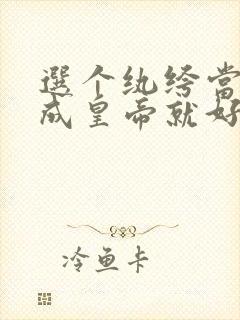 選个纨绔当
成皇帝就好
冷鱼卡